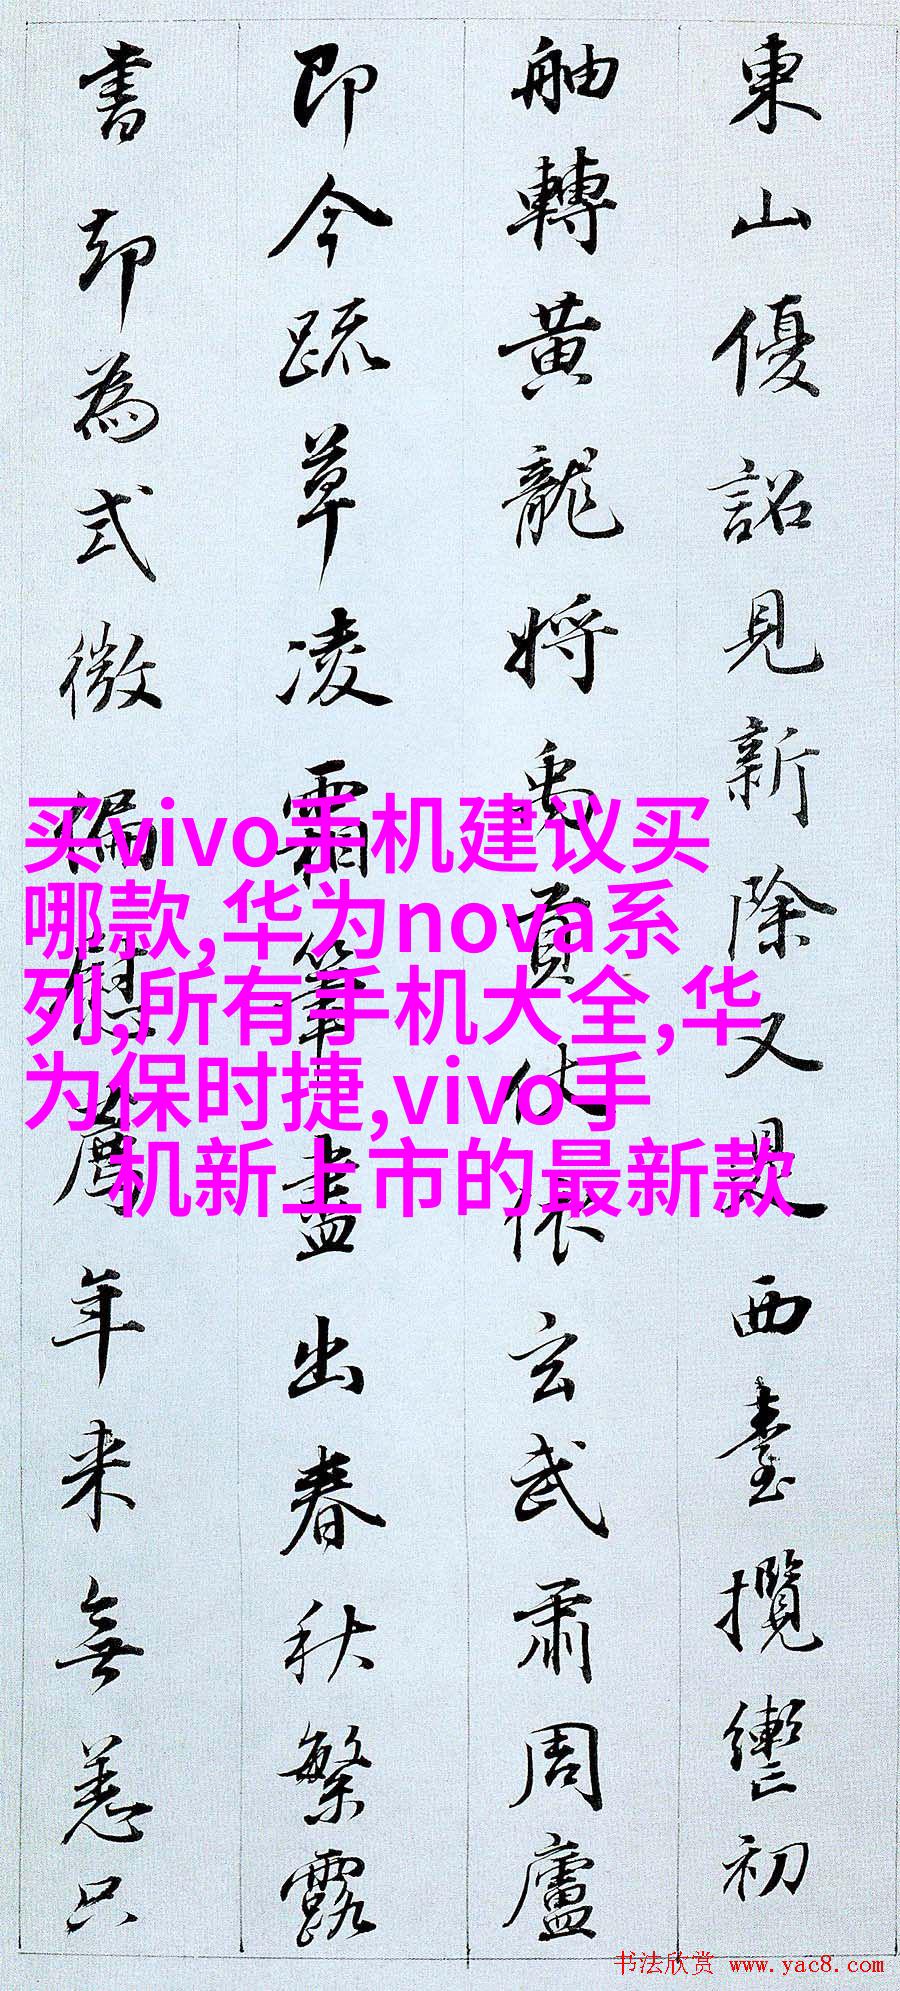 東山優詔見新除又見西臺攬轡初
舳轉黃龍將禹貢仗依玄武肅周廬
即今疏草凌霜筆盡出春秋繁露
書却為式微偏慰薦年来無恙只
买vivo手机建议买
哪款,华为nova系
列,所有手机大全,华
为保时捷,vivo手
机新上市的最新款
书法欣赏 www.yac8.com